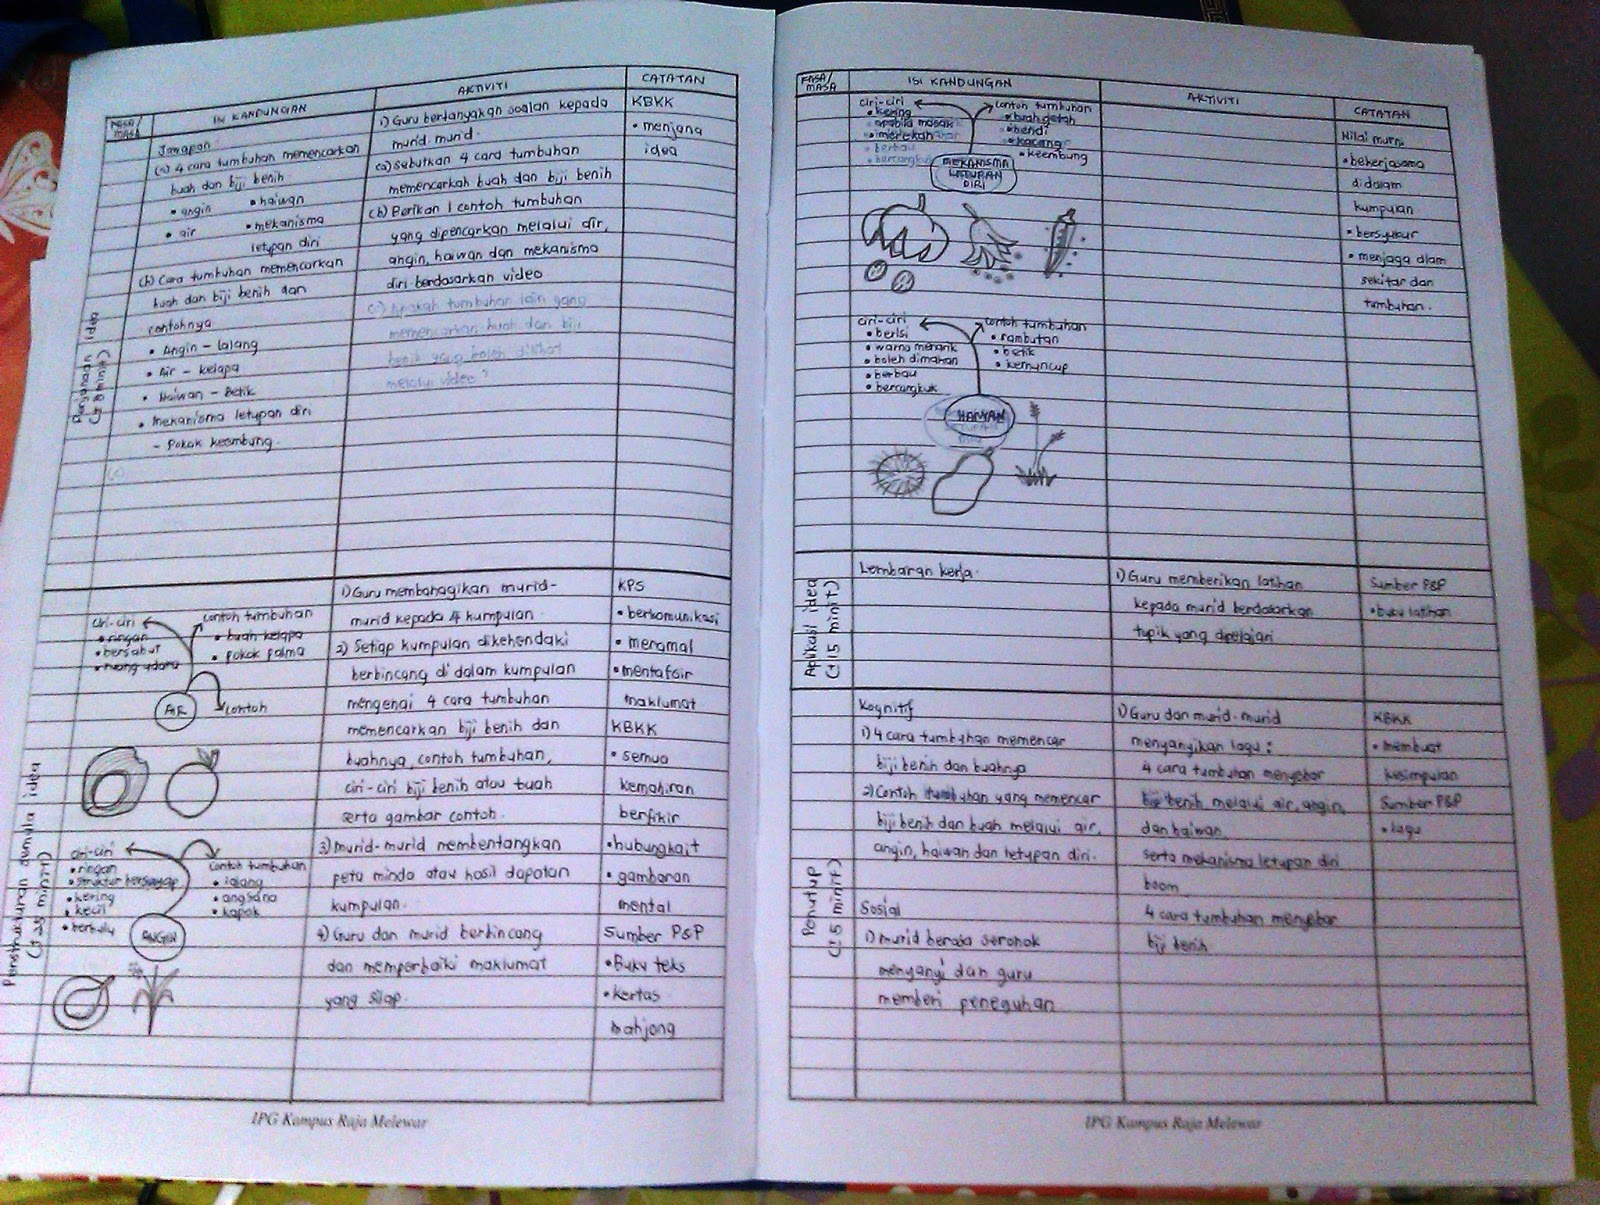 FASA/
MASA
ISI KANDUNGAN
AKTIVITI
CATATAN
Penjanaan idea
(± 8 minit)
Jawapan
(a) 4 cara tumbuhan memencarkan
buah dan biji benih
• angin • haiwan
• air • mekanisma
letupan diri
(b) Cara tumbuhan memencarkan
buah dan biji benih dan
contohnya
• Angin – lalang
• Air – kelapa
• Haiwan – Betik
• Mekanisma letupan diri
– Pokok keembung.
(c)
1) Guru bertanyakan soalan kepada
murid-murid.
(a) Sebutkan 4 cara tumbuhan
memencarkah buah dan biji benih
(b) Berikan 1 contoh tumbuhan
yang dipencarkan melalui air,
angin, haiwan dan mekanisma
diri berdasarkan video
(c) Apakah tumbuhan lain yang
memencarkan buah dan biji
benih yang boleh dilihat
melalui video?
KBKK
• menjana
idea
Penstrukturan semula idea
(± 25 minit)
ciri-ciri
• ringan
• bersabut
• ruang udara
contoh tumbuhan
• buah kelapa
• pokok palma
AIR
contoh
ciri-ciri
• ringan
• struktur bersayap
• kering
• kecil
• berbulu
contoh tumbuhan
• lalang
• angsana
• kapok
ANGIN
1) Guru membahagikan murid-
murid kepada 4 kumpulan.
2) Setiap kumpulan dikehendaki
berbincang di dalam kumpulan
mengenai 4 cara tumbuhan
memencarkan biji benih dan
buahnya, contoh tumbuhan,
ciri-ciri biji benih atau buah
serta gambar contoh.
3) Murid-murid membentangkan
peta minda atau hasil dapatan
kumpulan.
4) Guru dan murid berbincang
dan memperbaiki maklumat
yang silap.
KPS
• berkomunikasi
• meramal
• mentafsir
maklumat
KBKK
• semua
kemahiran
berfikir
• hubungkait
• gambaran
mental
Sumber P&P
• Buku teks
• kertas
mahjong
IPG Kampus Raja Melewar
FASA/
MASA
ISI KANDUNGAN
AKTIVITI
CATATAN
ciri-ciri
• kering
• apabila masak
• merekah
• berbau
• bercangkuk
contoh tumbuhan
• buah getah
• bendi
• kacang
• keembung
MEKANISMA
LETUPAN
DIRI
ciri-ciri
• berisi
• warna menarik
• boleh dimakan
• berbau
• bercangkuk
contoh tumbuhan
• rambutan
• betik
• kemuncup
HAIWAN
Nilai murni
• bekerjasama
di dalam
kumpulan
• bersyukur
• menjaga alam
sekitar dan
tumbuhan.
Aplikasi idea
(± 15 minit)
Lembaran kerja.
1) Guru memberikan latihan
kepada murid berdasarkan
topik yang dipelajari
Sumber P&P
• buku latihan
Penutup
(± 5 minit)
Kognitif
1) 4 cara tumbuhan memencar
biji benih dan buahnya
2) Contoh tumbuhan yang memencar
biji benih dan buah melalui air,
angin, haiwan dan letupan diri.
Sosial
1) murid berasa seronok
menyanyi dan guru
memberi peneguhan
1) Guru dan murid-murid
menyanyikan lagu:
4 cara tumbuhan menyebar
biji benih, melalui air, angin,
dan haiwan
serta mekanisma letupan diri
boom
4 cara tumbuhan menyebar
biji benih
KBKK
• membuat
kesimpulan
Sumber P&P
• lagu
IPG Kampus Raja Melewar